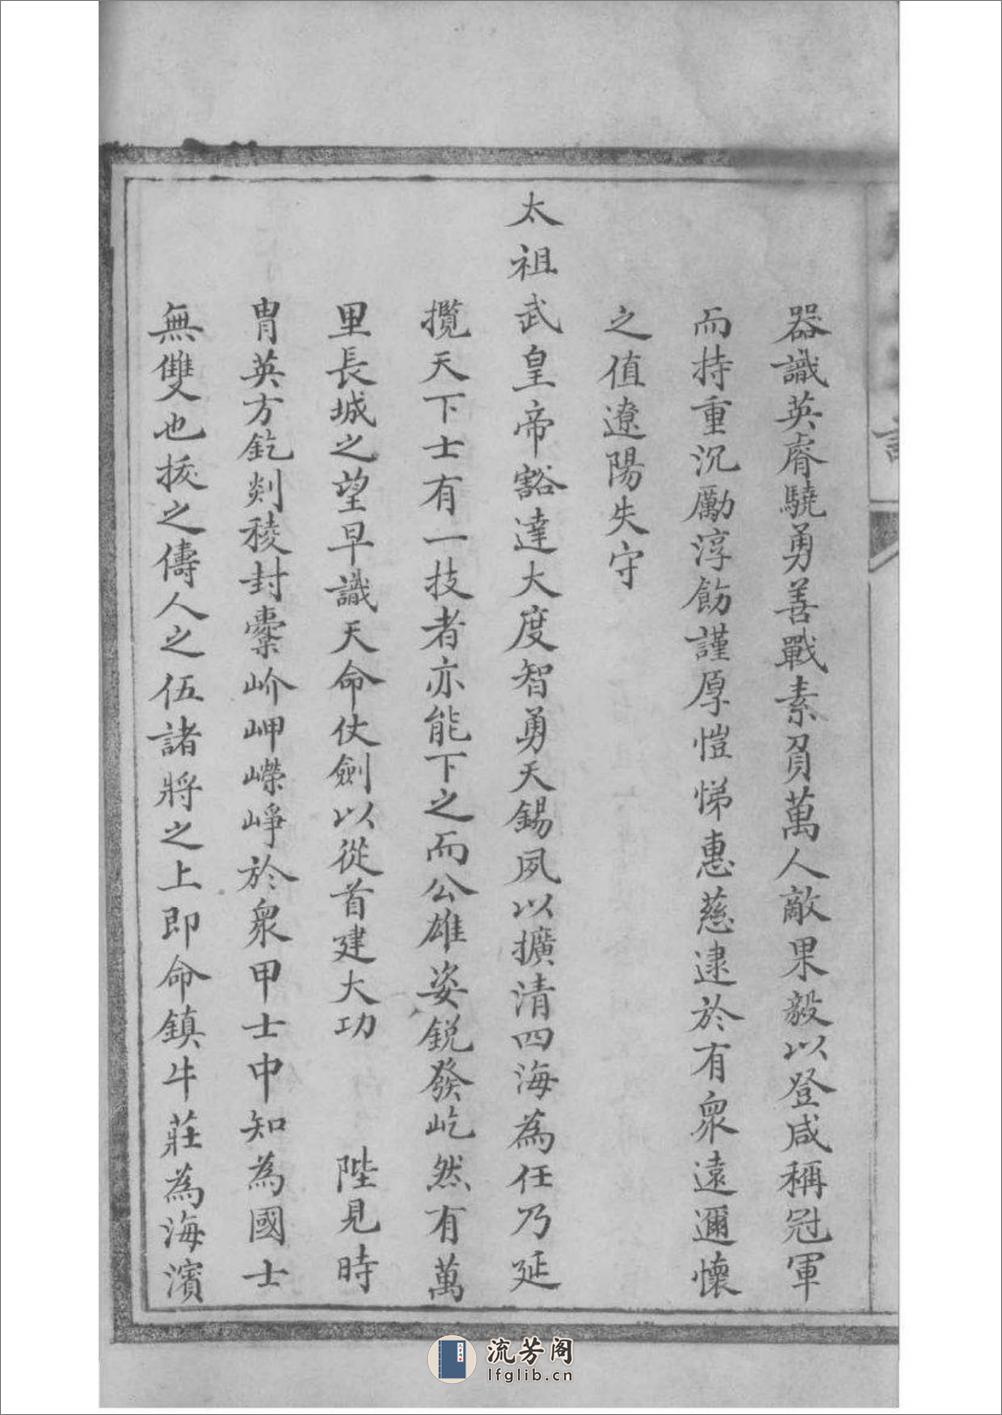 器識英睿驍勇善戰素負萬人敵果毅以登咸稱冠軍
而持重沉勵淳飭謹厚愷悌惠慈逮於有衆遠邇懷
之值遼陽失守
太祖武皇帝豁達大度智勇天錫夙以擴清四海為任乃延
攬天下士有一技者亦能下之而公雄姿銳發屹然有萬
里長城之望早識天命仗劍以從首建大功 陛見時
胄英方釳剡稜封橐岕岬嶸崢於衆甲士中知為國士
無雙也拔之儔人之伍諸將之上即命鎮牛莊為海濱
流芳阁
lfglib.cn